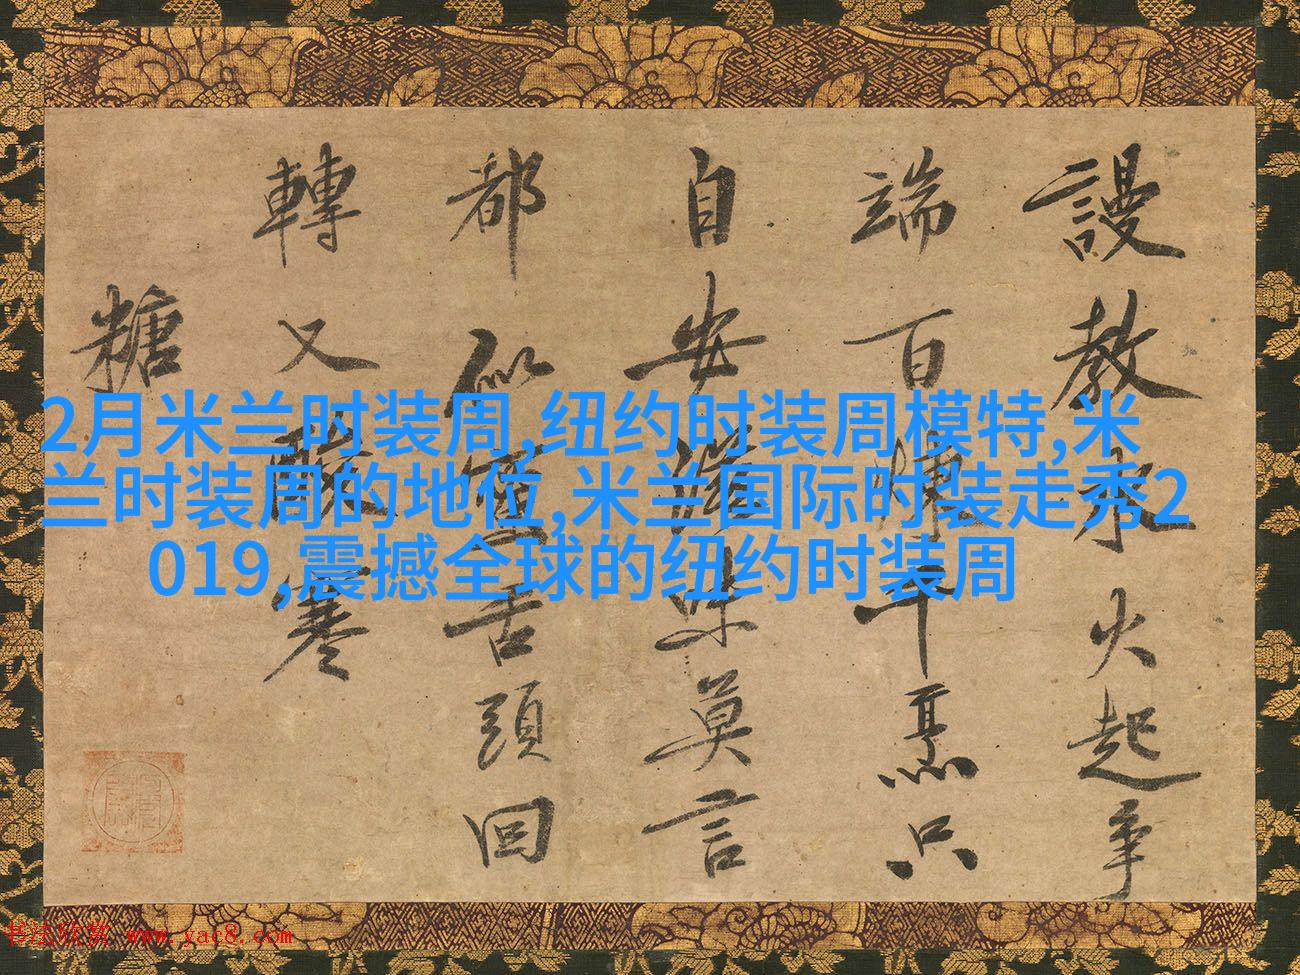 謾教水火起爭
端百煉千烹只
自安滋味莫言
都似蜜舌頭回
轉又酸寒
糖
2月米兰时装周,纽约时装周模特,米
兰时装周的地位,米兰国际时装走秀2
019,震撼全球的纽约时装周
书法欣赏 www.yac8.com